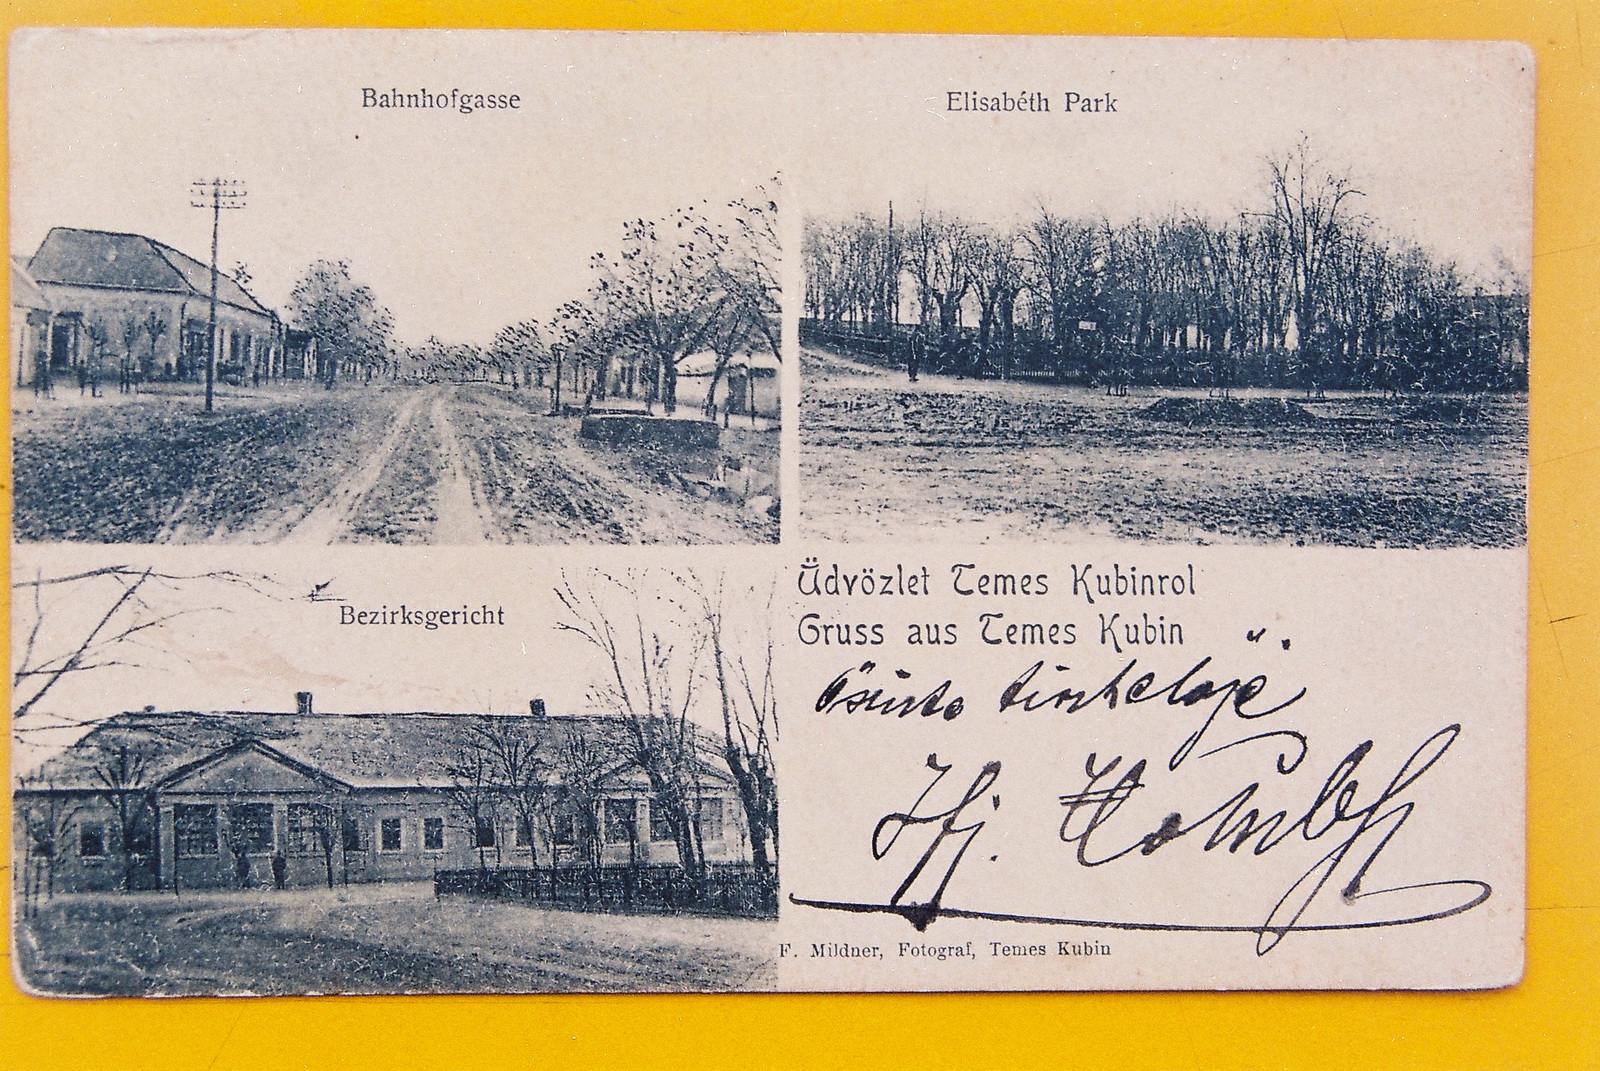 Bahnhofgasse
Elisabéth Park
Bezirksgericht
Üdvözlet Temes Kubinrol
Gruss aus Temes Kubin
őszinte tisztelője
F. Mildner, Fotograf, Temes Kubin